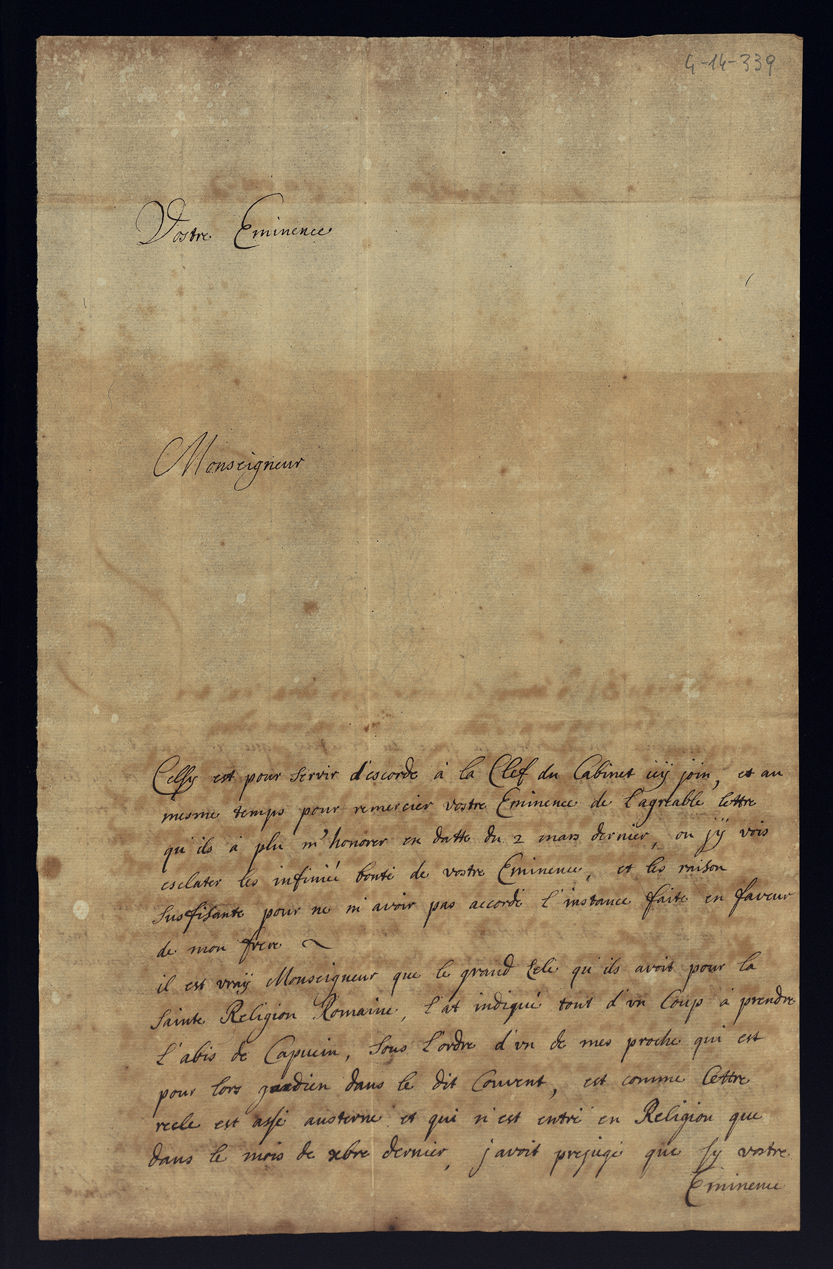 4-14-339
Vostre Eminence
Monseigneur
Cessy est pour servir d'escorde à la Clef du Cabinet icÿ join, et au
mesme temps pour remercier vostre Eminence de l'agreable lettre
qu'ils à plu m'honorer en datte du 2 mars dernier, ou j'ÿ vois
esclater les infinié bonté de vostre Eminence, et les raison
susfisante pour ne m'avoir pas accordé l'instance faite en faveur
de mon frere
il est vraÿ Monseigneur que le grand Zele qu'ils avoit pour la
Sainte Religion Romaine, l'at indiqué tout d'vn Coup à prendre
L'abis de Capucin, sous l'ordre d'vn de mes proche qui est
pour lors gardien dans le dit Couvent, est comme Cettre
recle est assé austerne et qui n'est entré en Religion que
dans le mois de xbre dernier, j'avoit prejugé que sy vostre
Eminence